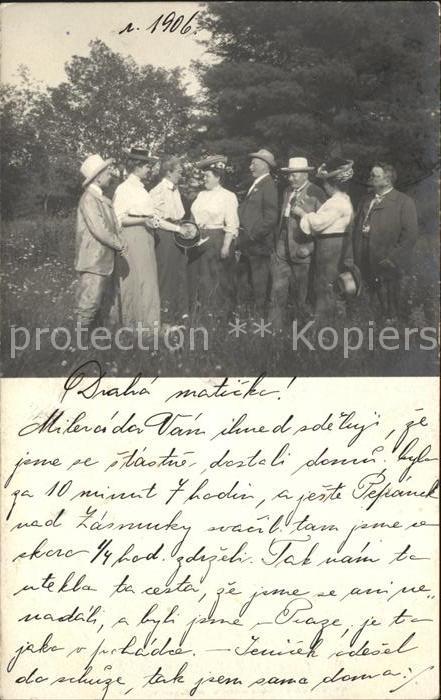 r. 1906.
protection ** Kopiers
Drahá matičko!
Milerada Vám ihned sděluji, že
jsme se šťastně dostali domů, bylo
za 10 minut 7 hodin, a ještě Pepánek
nad Zásmuky svačil tam jsme se
skoro 1/4 hod. zdrželi. Tak nám ta
utekla ta cesta, že jsme se ani ne„
nadáli, a byli jsme v Praze, je to
jako v pohádce. – Jeníček odešel
do schůze, tak jsem sama doma :/